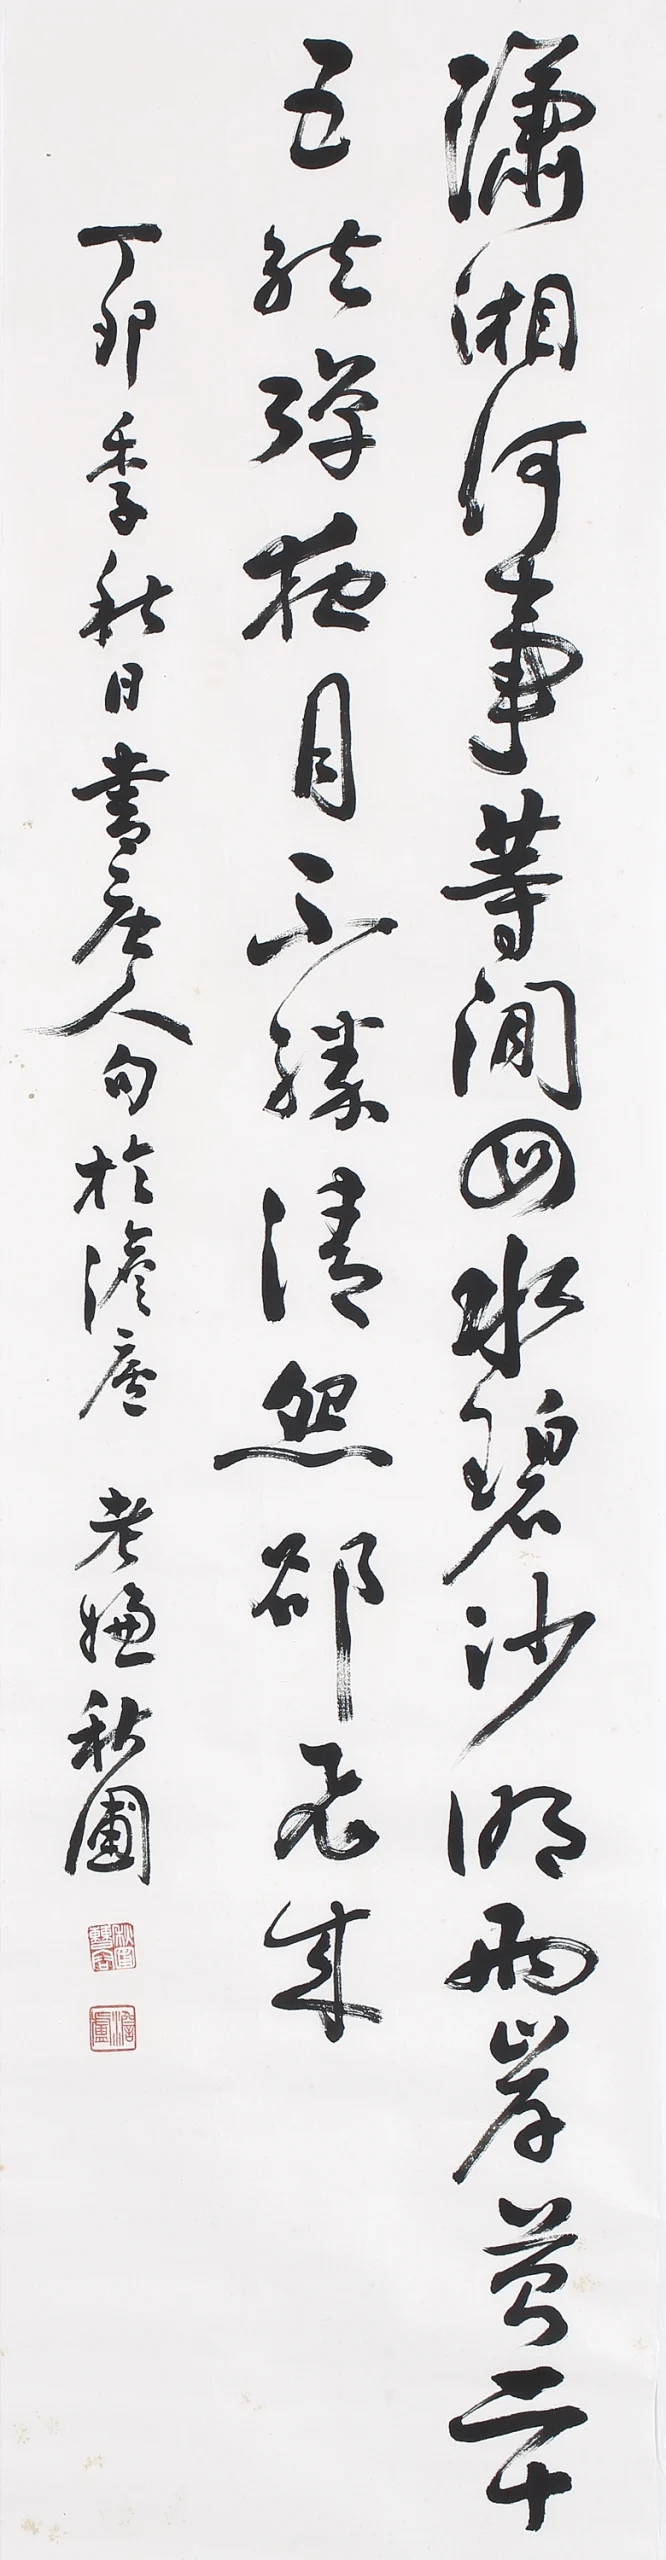 瀟湘何事等閒回水碧沙明兩岸苔二十
五絃彈夜月不勝清怨卻飛來
丁卯季秋日書唐人句於澹廬 老嫌秋圃
澹盧